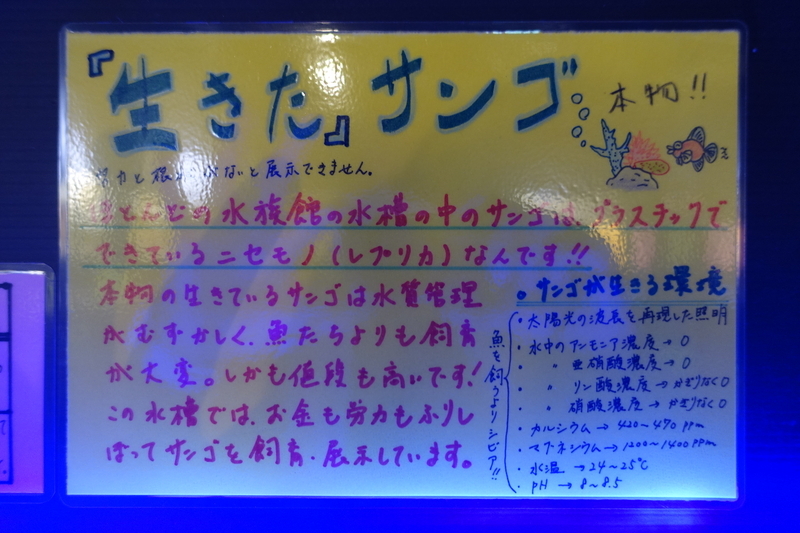 『生きた』サンゴ
本物!!
労力と根気がないと展示できません。
ほとんどの水族館の水槽の中のサンゴは、プラスチックで
できているニセモノ(レプリカ)なんです!!
本物の生きているサンゴは水質管理
がむずかしく、魚たちよりも飼育
が大変。しかも値段も高いです!
この水槽では、お金も労力もふりし
ぼってサンゴを飼育・展示しています。
。サンゴが生きる環境
魚を飼うよりシビア!!
・太陽光の波長を再現した照明
・水中のアンモニア濃度→0
・〃 亜硝酸濃度→0
・〃 リン酸濃度→かぎりなく0
・〃 硝酸濃度→かぎりなく0
・カルシウム→420~470ppm
・マグネシウム→1200~1400ppm
・水温→24~25℃
・pH→8~8.5